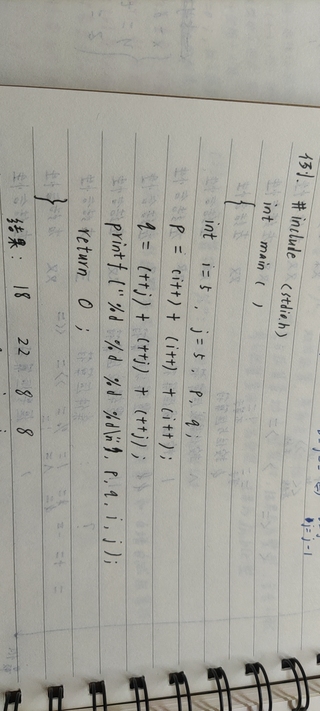 例1. #include (stdio.h)
int main ( )
{
int i=5, j=5, p, q;
p = (i++) + (i++) + (i++);
q = (++j) + (++j) + (++j);
printf ("%d %d %d %d\n", p, q, i, j);
return 0;
}
结果: 18 22 8 8
j=j-1